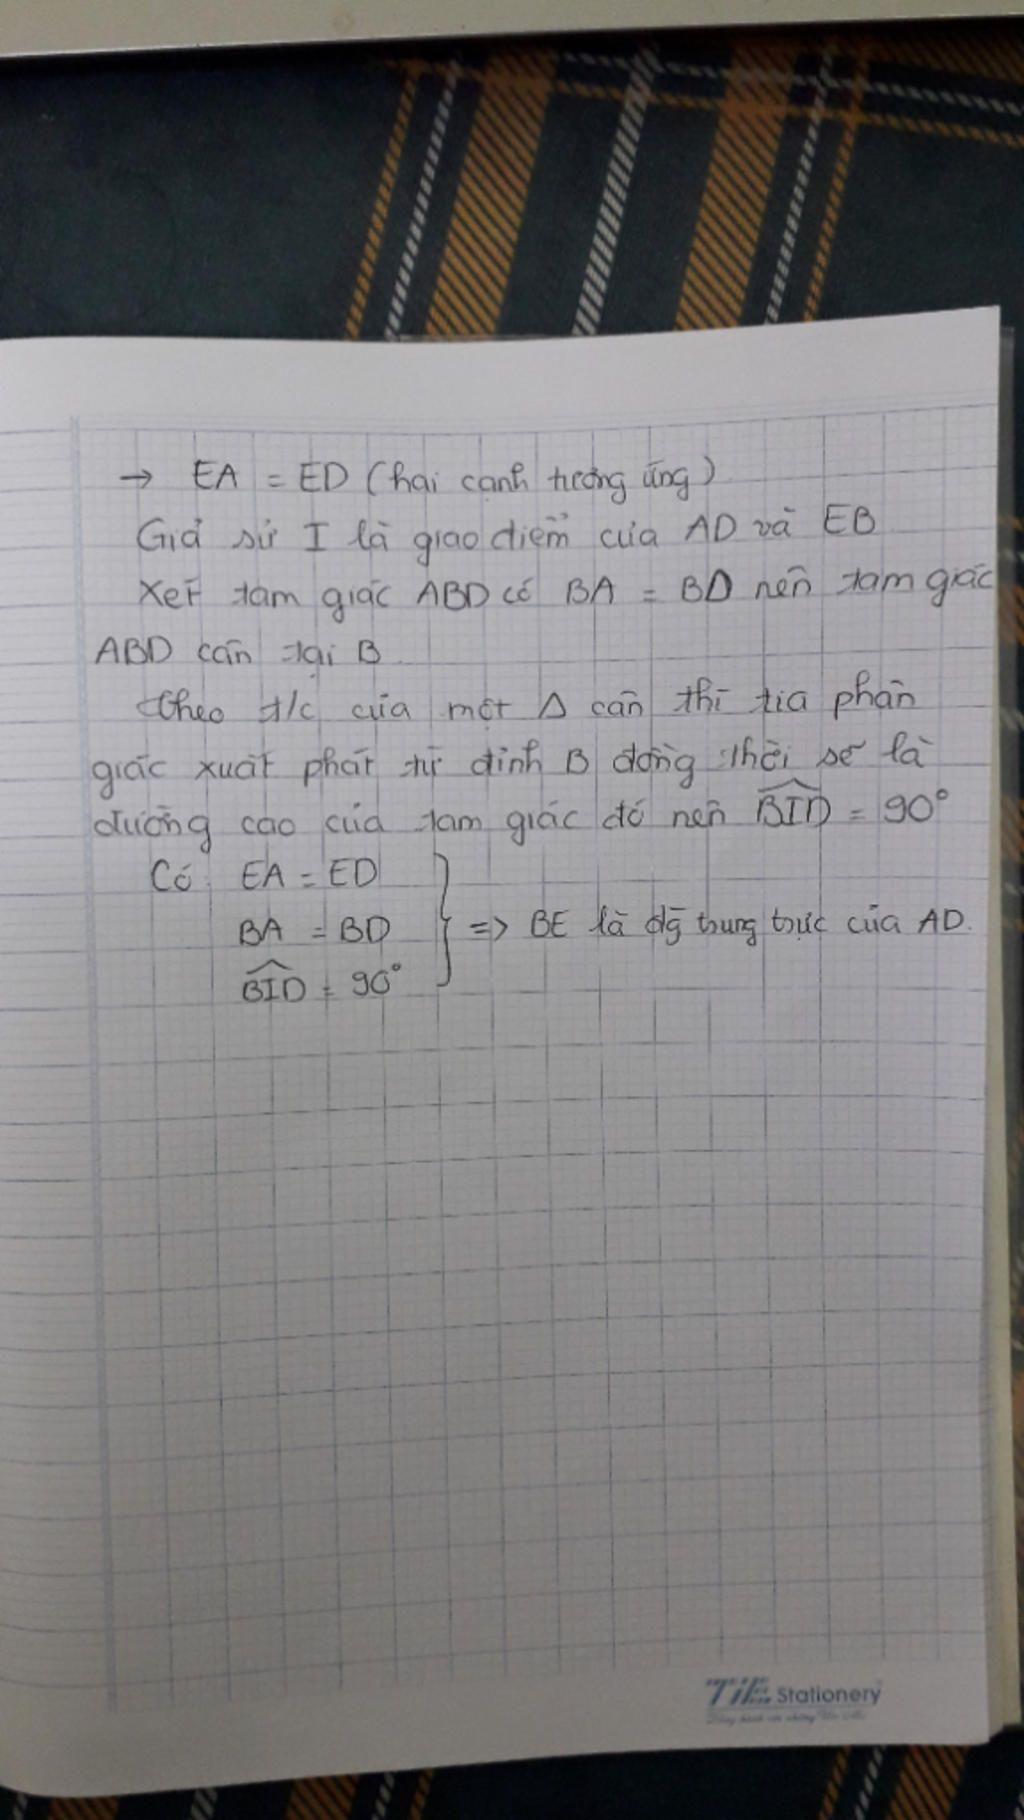 → EA = ED (hai cạnh tương ứng)
Giả sử I là giao điểm của AD và EB
Xét tam giác ABD có BA = BD nên tam giác
ABD cân tại B
theo t/c của một Δ cân thì tia phân
giác xuất phát từ đỉnh B đồng thời sẽ là
đường cao của tam giác đó nên \widehat{BID} = 90°
Có EA = ED
BA = BD
\widehat{BID} = 90°
} => BE là đg trung trực của AD.
TiE Stationery